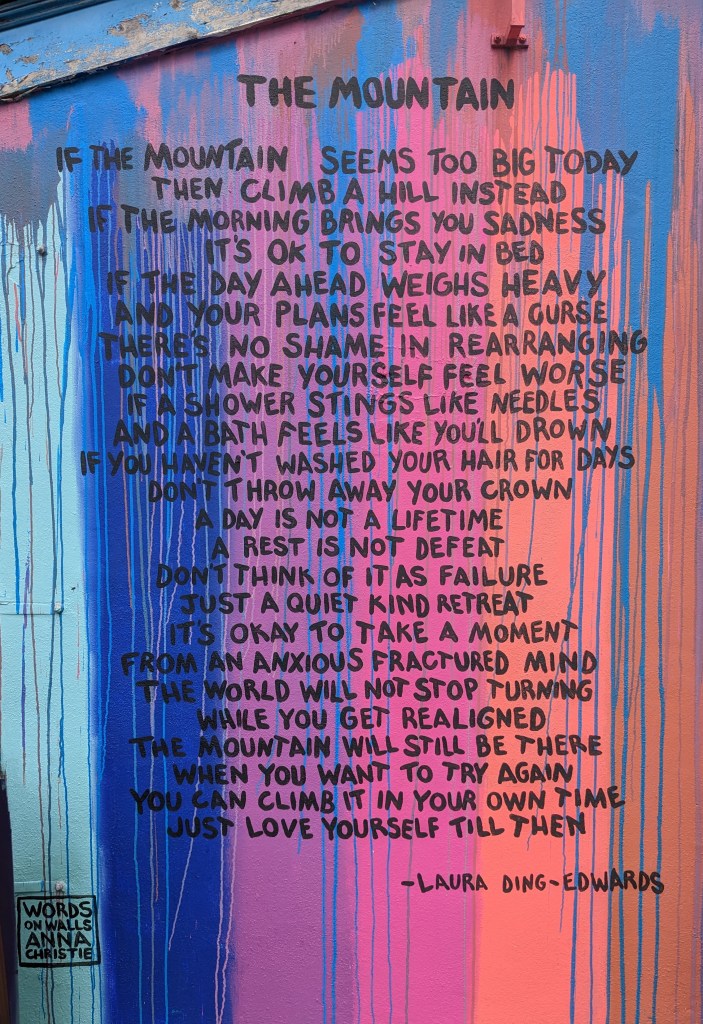 THE MOUNTAIN
IF THE MOUNTAIN SEEMS TOO BIG TODAY
THEN CLIMB A HILL INSTEAD
IF THE MORNING BRINGS YOU SADNESS
IT'S OK TO STAY IN BED
IF THE DAY AHEAD WEIGHS HEAVY
AND YOUR PLANS FEEL LIKE A CURSE
THERE'S NO SHAME IN REARRANGING
DON'T MAKE YOURSELF FEEL WORSE
IF A SHOWER STINGS LIKE NEEDLES
AND A BATH FEELS LIKE YOU'LL DROWN
IF YOU HAVEN'T WASHED YOUR HAIR FOR DAYS
DON'T THROW AWAY YOUR CROWN
A DAY IS NOT A LIFETIME
A REST IS NOT DEFEAT
DON'T THINK OF IT AS FAILURE
JUST A QUIET KIND RETREAT
IT'S OKAY TO TAKE A MOMENT
FROM AN ANXIOUS FRACTURED MIND
THE WORLD WILL NOT STOP TURNING
WHILE YOU GET REALIGNED
THE MOUNTAIN WILL STILL BE THERE
WHEN YOU WANT TO TRY AGAIN
YOU CAN CLIMB IT IN YOUR OWN TIME
JUST LOVE YOURSELF TILL THEN
-LAURA DING-EDWARDS
WORDS
ON WALLS
ANNA
CHRISTIE